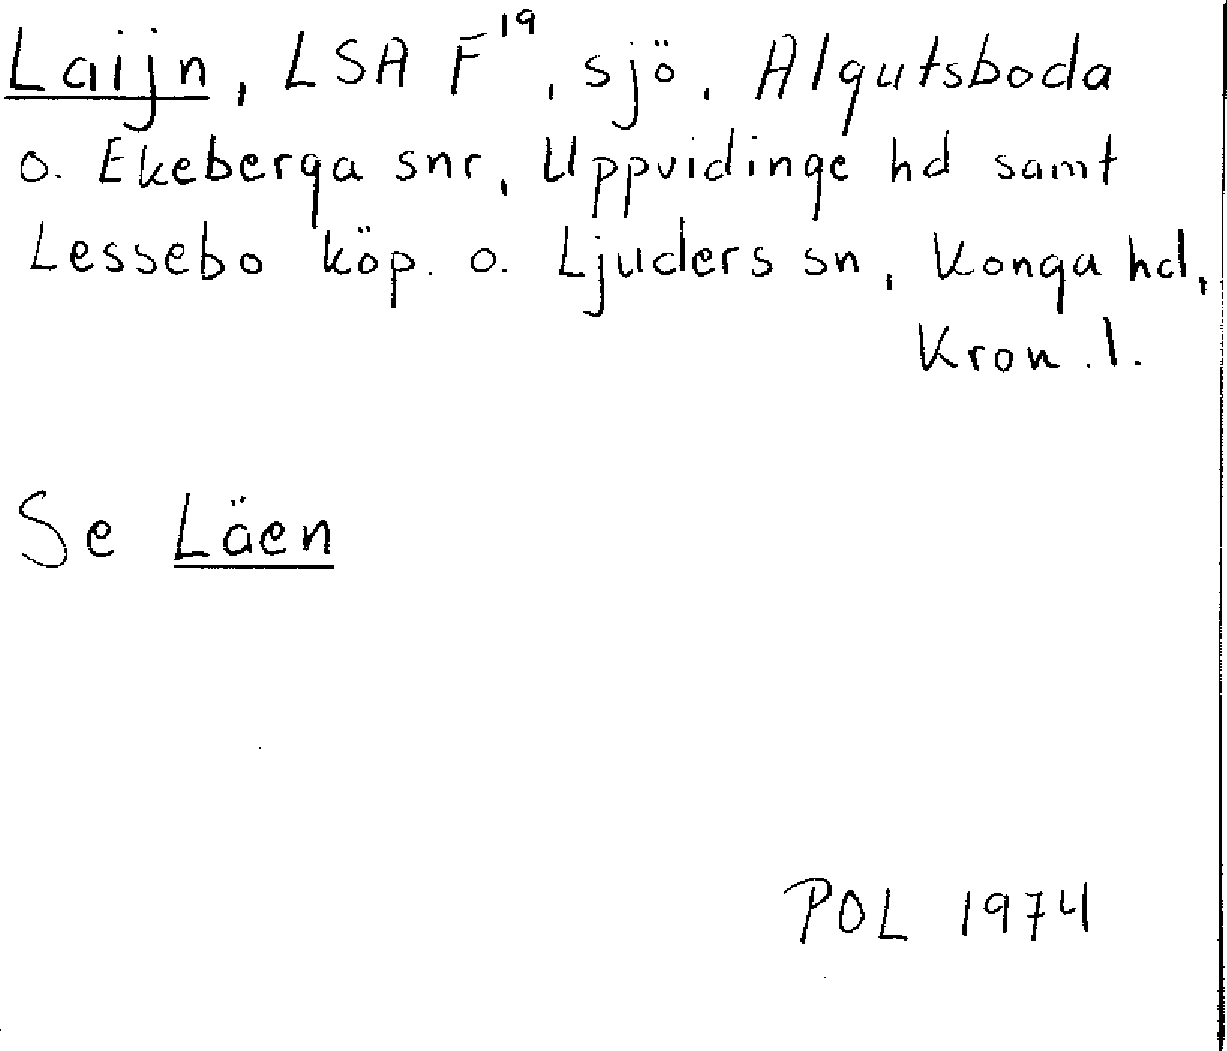 Laijn, LSA F¹⁹, sjö, Algutsboda
o. Ekeberga snr, Uppvidinge hd samt
Lessebo köp. o. Ljuders sn, Konga hd,
Kron. l.
Se Läen
POL 1974